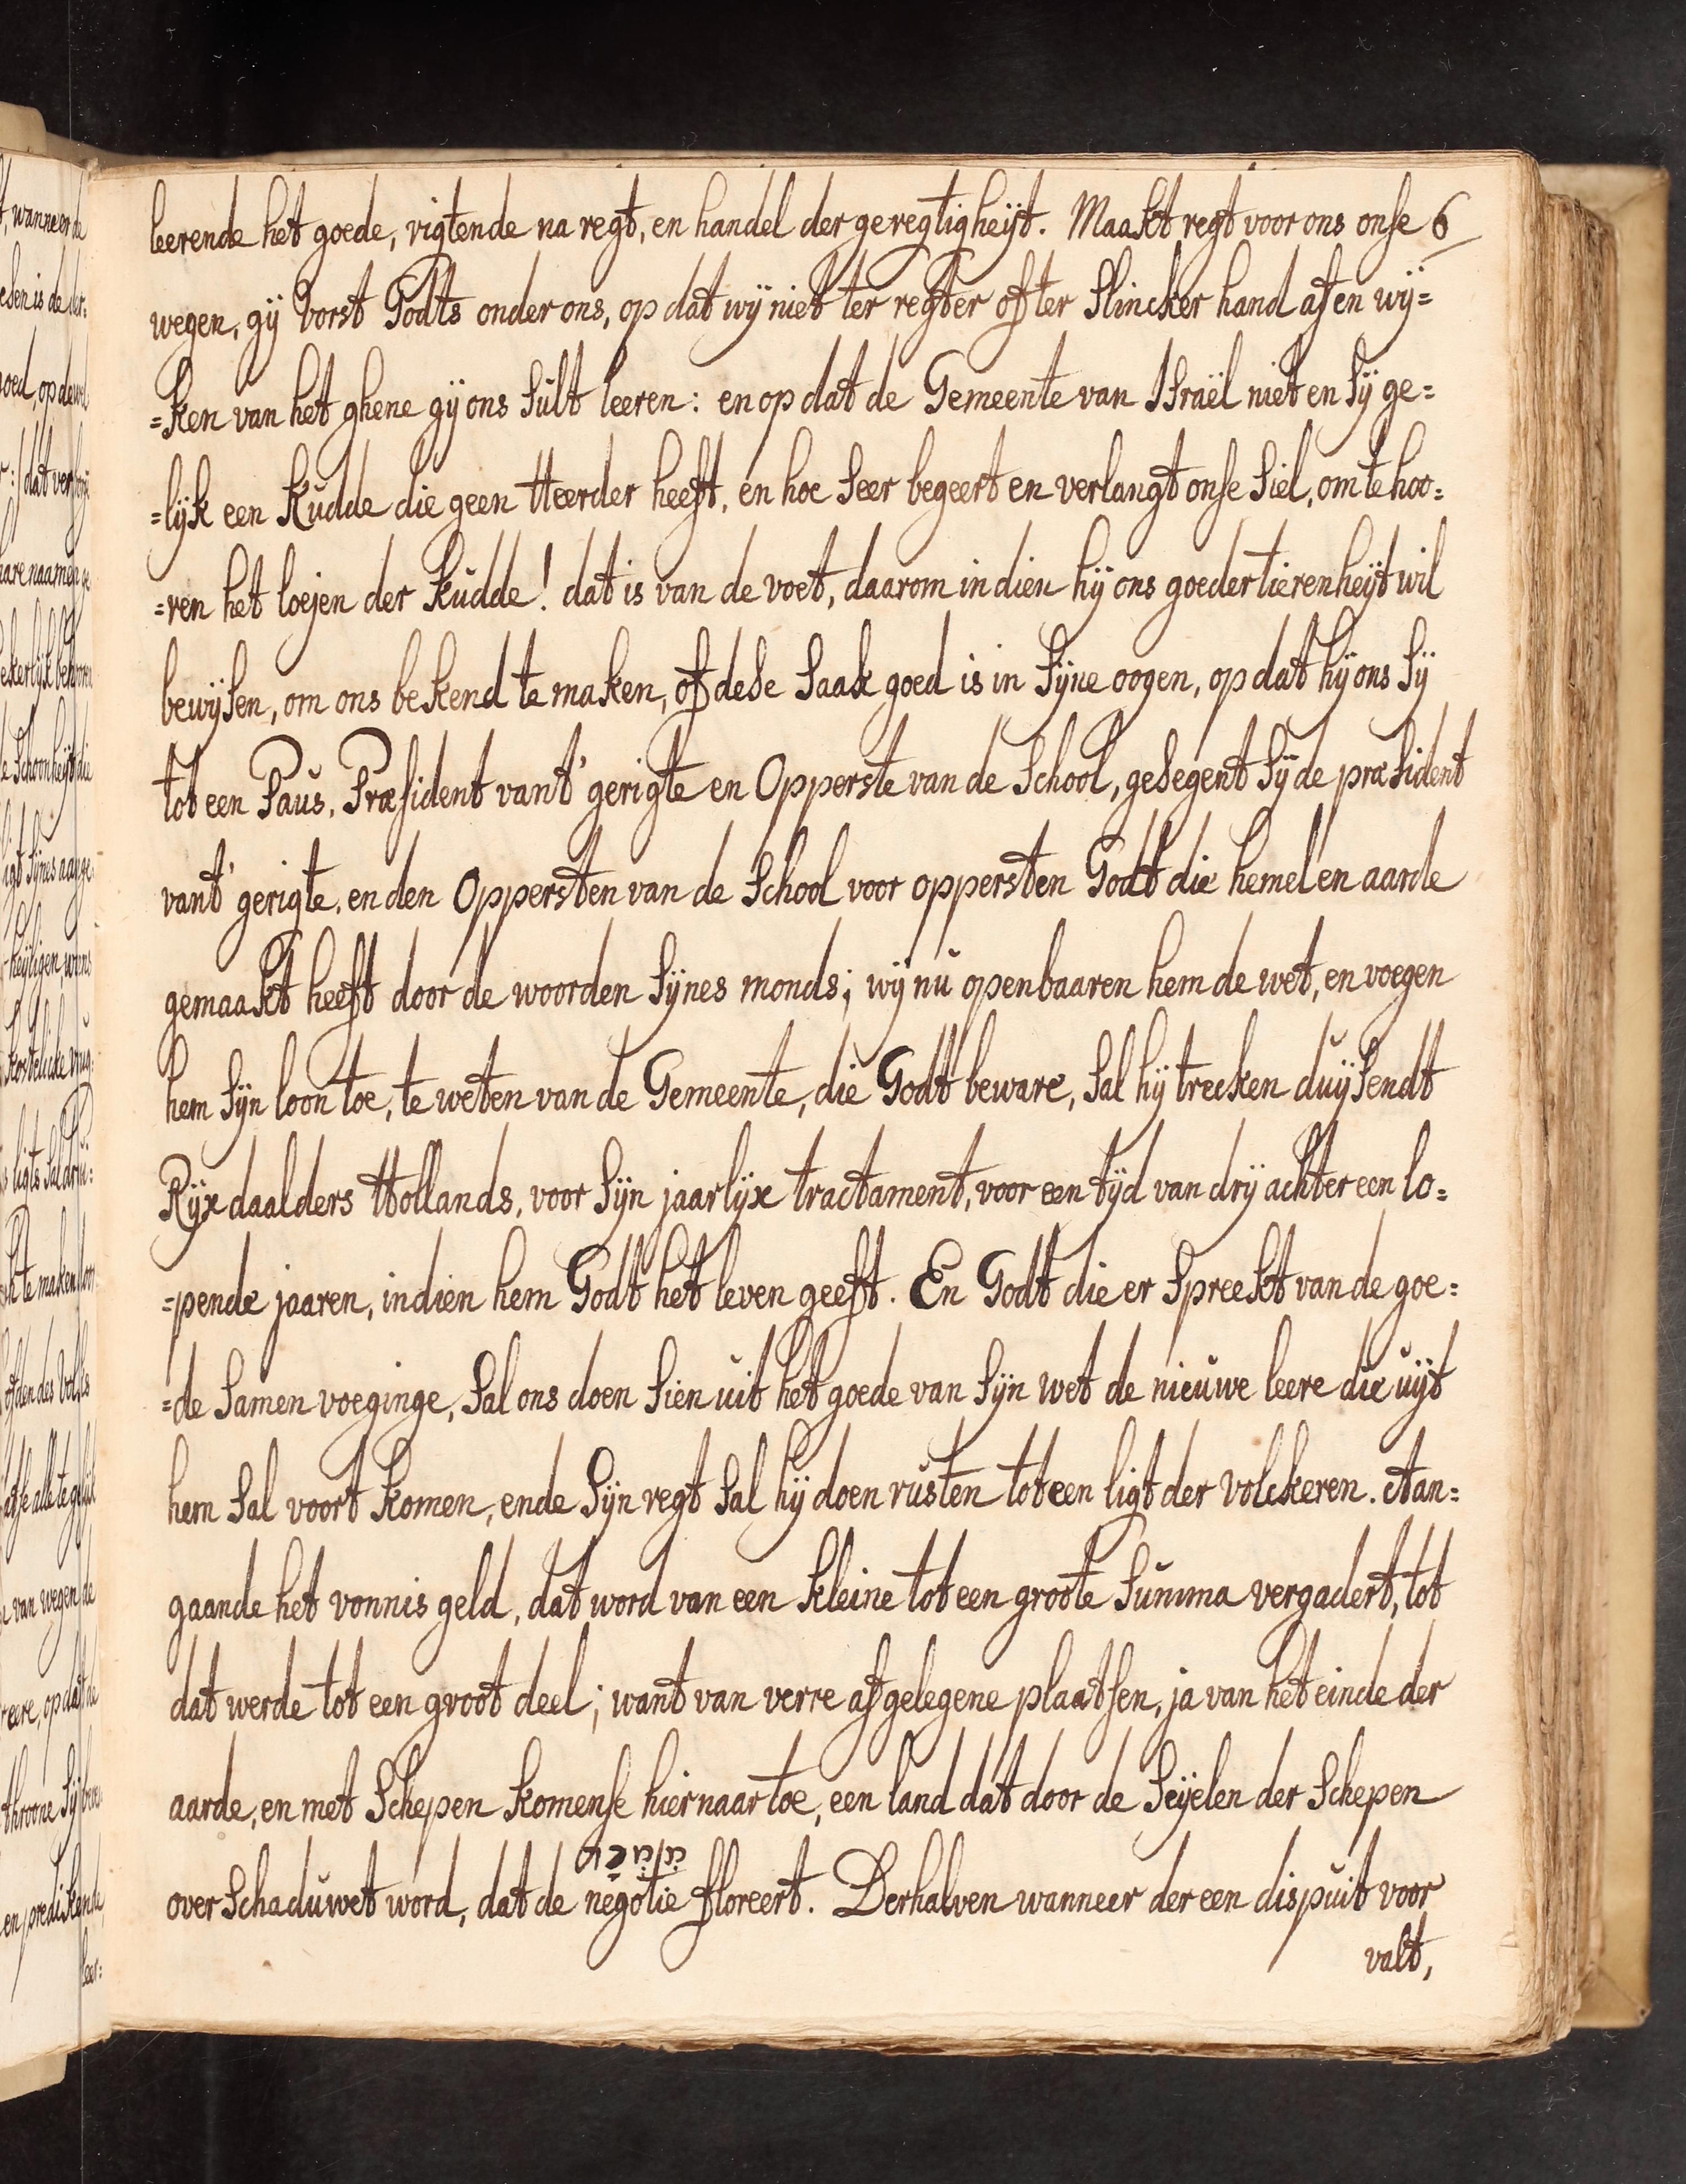 leerende het goede, rigtende na regt, en handel der geregtigheijt. Maakt regt voor ons onse 6
wegen, gij Vorst Godts onder ons, op dat wij niet ter regter of ter Slincker hand af en wij=
=ken van het ghene gij ons Sult leeren: en op dat de Gemeente van ISraël niet en Sij ge=
=lijk een Kudde die geen Heerder heeft, en hoe Seer begeert en verlangt onse Siel, om te hoo=
=ren het loejen der Kudde! dat is van de voet, daarom indien hij ons goedertierenheijt wil
bewijsen, om ons bekend te maken, of dese Saak goed is in Sijne oogen, op dat hij ons Sij
tot een Paus, Præsident vant' gerigte en Opperste van de School, gesegent Sij de præsident
vant' gerigte, en den Oppersten van de School voor oppersten Godt die hemel en aarde
gemaakt heeft door de woorden Sijnes monds; wij nu openbaaren hem de wet, en voegen
hem Sijn loon toe, te weten van de Gemeente, die Godt beware, Sal hij trecken duijsendt
Rijx daalders Hollands, voor Sijn jaarlijx tractament, voor een tijd van drij achter een lo=
=pende jaaren, indien hem Godt het leven geeft. En Godt die er Spreekt van de goe=
=de Samen voeginge, Sal ons doen Sien uit het goede van Sijn wet de nieuwe leere die uijt
hem Sal voort komen, ende Sijn regt Sal hij doen rusten tot een ligt der volckeren. Aan=
gaande het vonnis geld, dat word van een kleine tot een groote Summa vergadert, tot
dat werde tot een groot deel; want van verre afgelegene plaatsen, ja van het einde der
aarde, en met Schepen komense hier naar toe, een land dat door de Seijelen der Schepen
over Schaduwet word, dat de negotie floreert. Derhalven wanneer der een dispuit voor
valt,